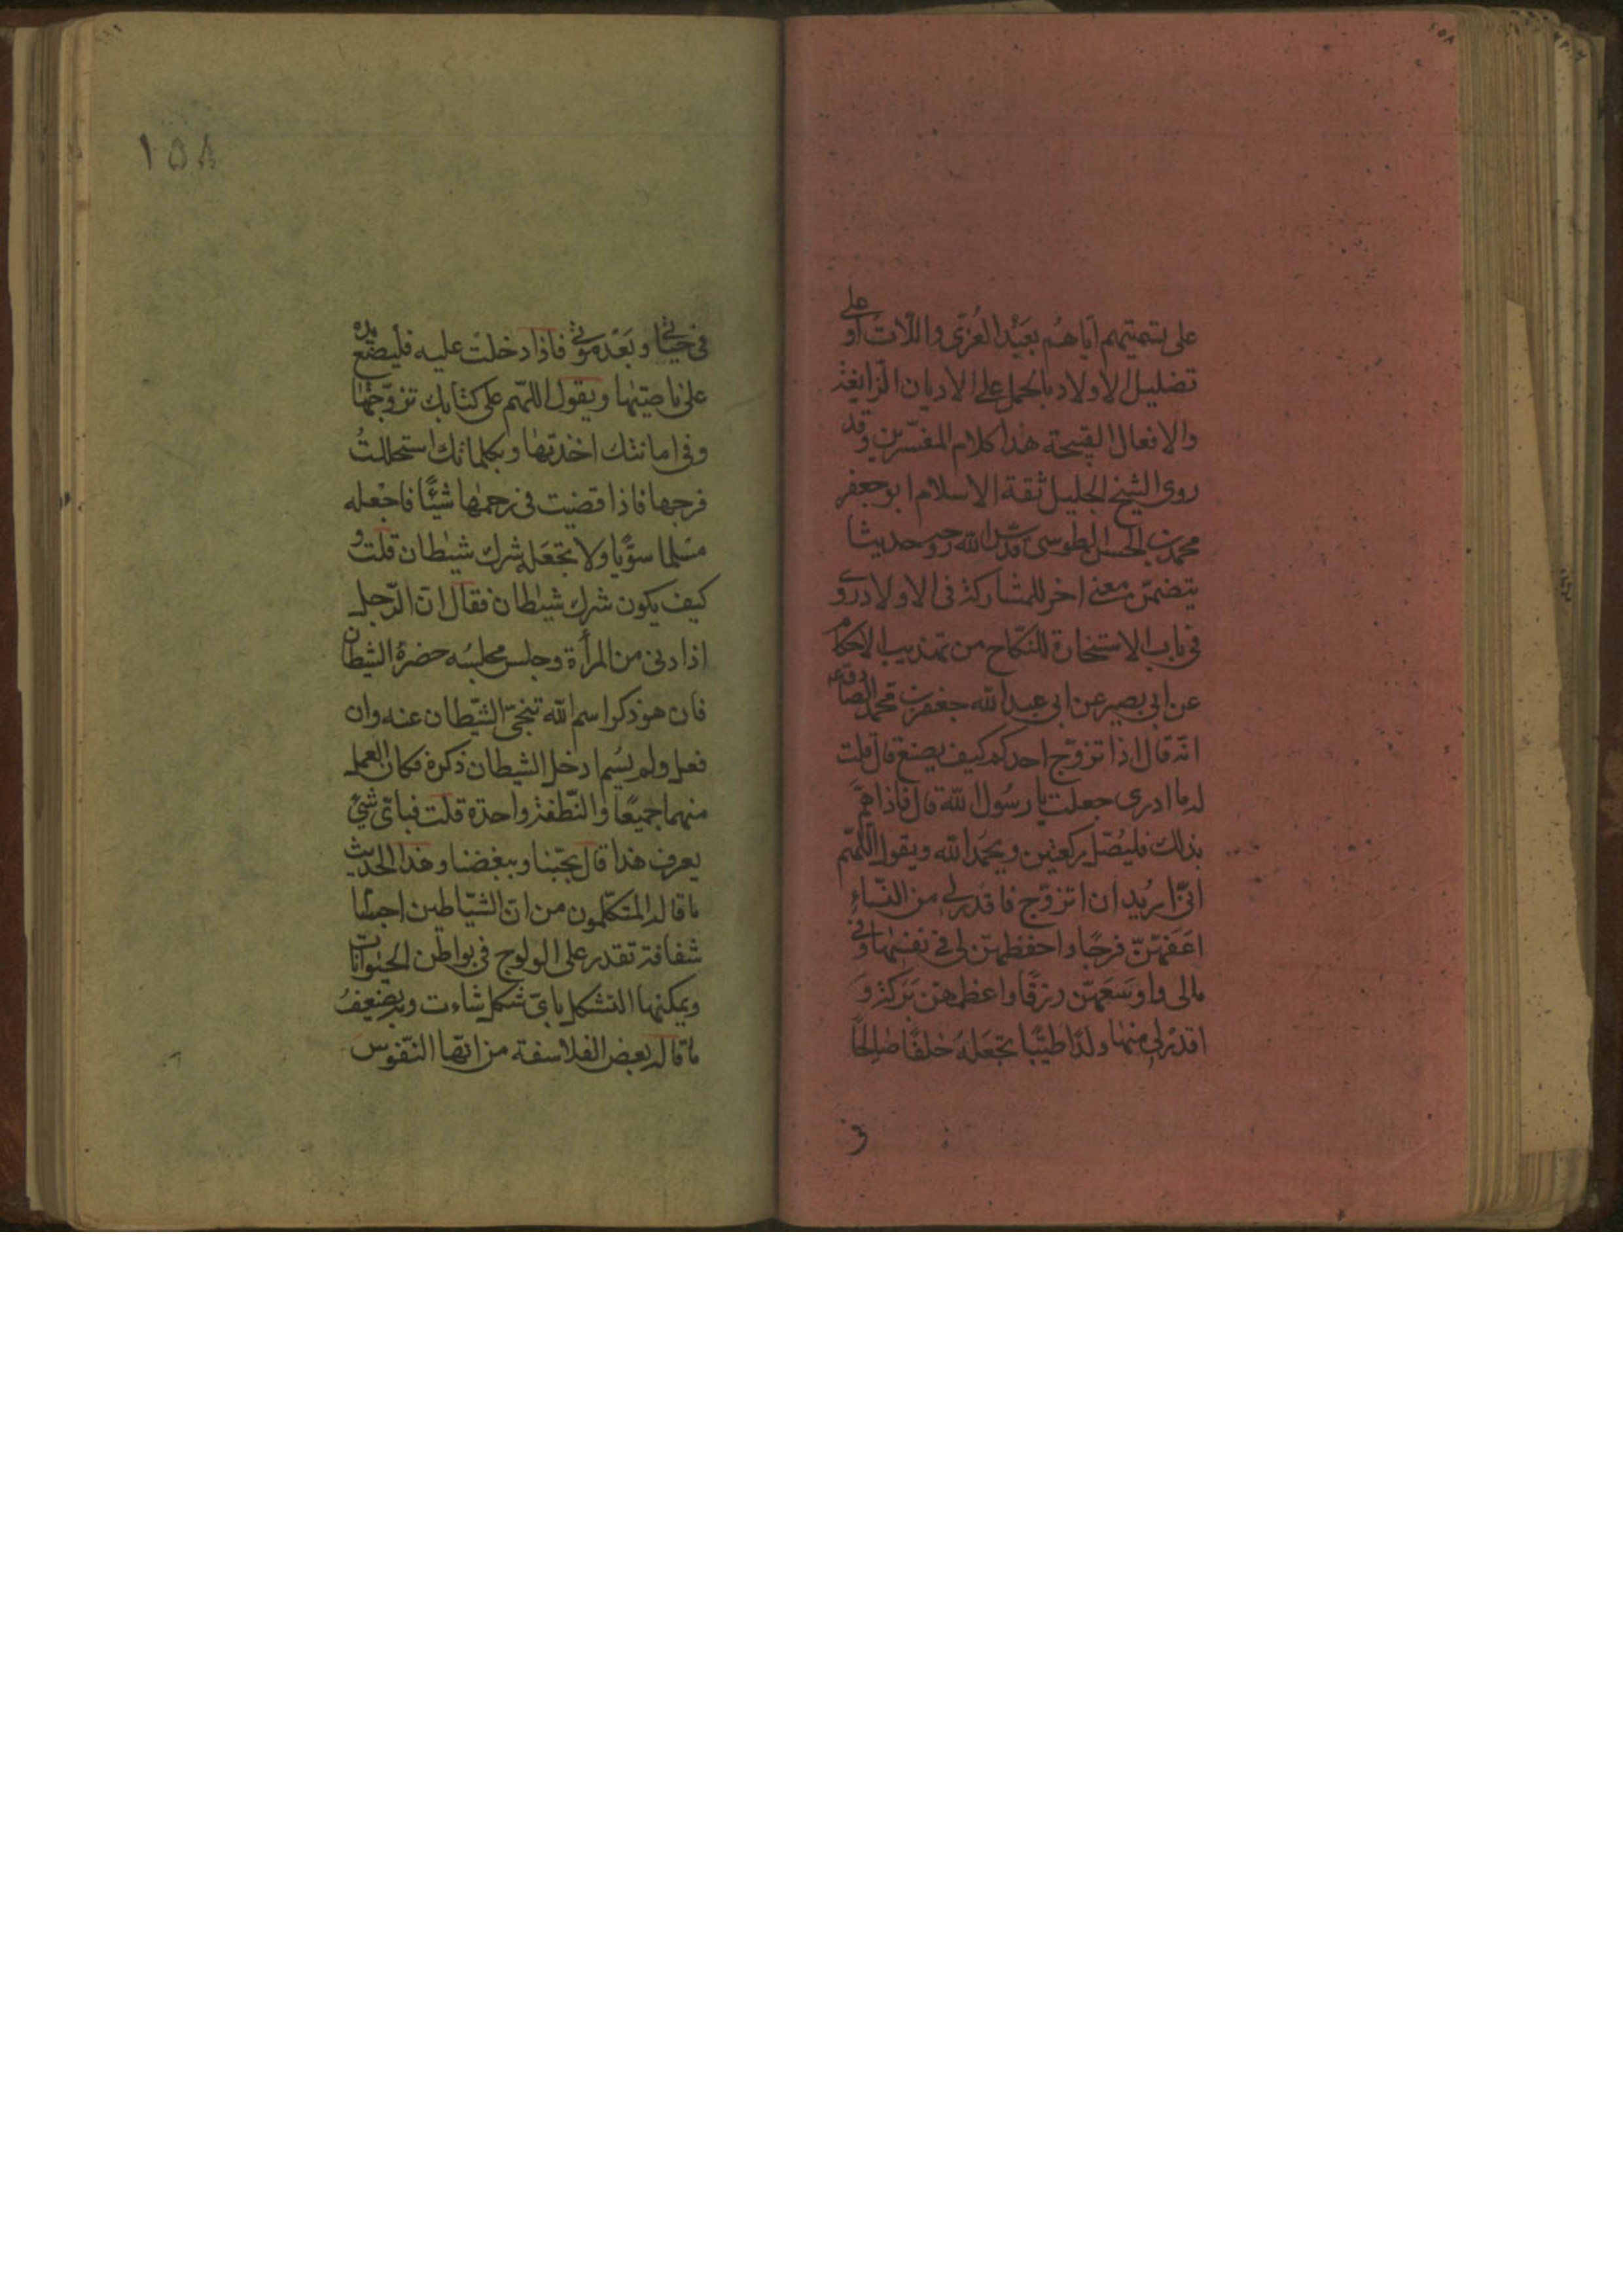 على تسميتهم اياهم بعبد العزى واللات او على
تضليل الاولاد بالحمل على الاديان الزايغة
والافعال القبيحة هذا كلام المفسرين وقد
روى الشيخ الجليل ثقة الاسلام ابو جعفر
محمد بن الحسن الطوسى قدس الله روحه حديثا
يتضمن معنى اخر للمشاركة فى الاولاد روى
فى باب الاستخارة للنكاح من تهذيب الاحكام
عن ابى بصير عن ابى عبد الله جعفر بن محمد الصادق ع
انه قال اذا تزوج احدكم كيف يصنع قال قلت
له ما ادرى جعلت يا رسول الله قال فاذا هم
بذلك فليصل ركعتين ويحمد الله ويقول اللهم
انى اريد ان اتزوج فاقدر لى من النساء
اعفهن فرجا واحفظهن لى فى نفسها وفى
مالى واوسعهن رزقا واعظمهن بركة و
اقدر لى منها ولدا طيبا تجعله خلفا صالحا
فى
١٥٨
فى حيٰوتى وبعد موتى فاذا دخلت عليه فليضع يده
على ناصيتها ويقول اللهم على كتابك تزوجتها
وفى امانتك اخذتها وبكلماتك استحللت
فرجها فاذا قضيت فى رحمها شيئا فاجعله
مسلما سويا ولا تجعله شرك شيطان قلت و
كيف يكون شرك شيطان فقال ان الرجل
اذا دنى من المرأة وجلس مجلسه حضره الشيطان
فان هو ذكر اسم الله تنحى الشيطان عنه وان
فعل ولم يسم ادخل الشيطان ذكره فكان العمل
منهما جميعا والنطفة واحدة قلت فباى شئ
يعرف هذا قال بحبنا وببغضنا وهذا الحديث
ما قاله المتكلمون من ان الشياطين اجسام
شفافة تقدر على الولوج فى بواطن الحيوانات
ويمكنها التشكل باى شكل شاءت وبه يضعف
ما قاله بعض الفلاسفة من انها النفوس